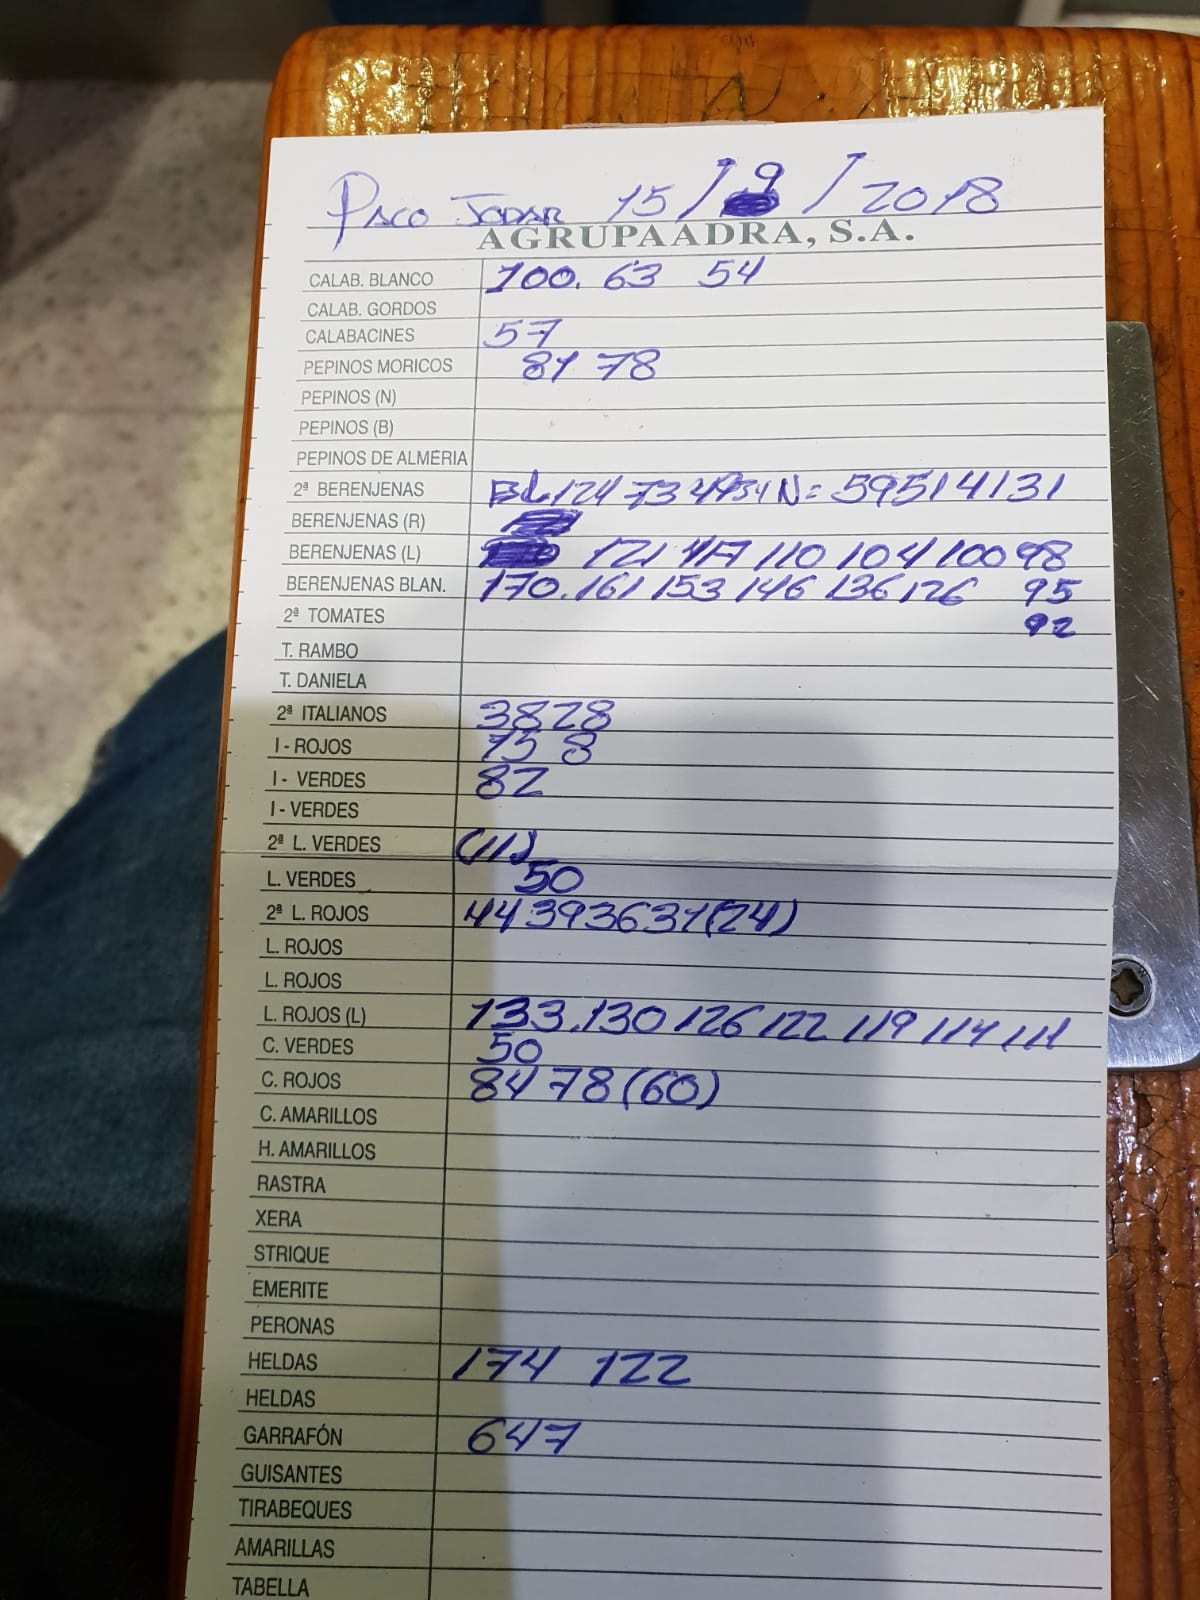 Paco Jodar 15/9/2018
AGRUPAADRA, S.A.
CALAB. BLANCO 100. 63 54
CALAB. GORDOS
CALABACINES 57
PEPINOS MORICOS 81 78
PEPINOS (N)
PEPINOS (B)
PEPINOS DE ALMERIA
2ª BERENJENAS BL 124 73 N= 59 51 41 31
BERENJENAS (R)
BERENJENAS (L) 121 117 110 104 100 98
BERENJENAS BLAN. 170. 161 153 146 136 126 95
2ª TOMATES 92
T. RAMBO
T. DANIELA
2ª ITALIANOS 38 28
I - ROJOS 75 8
I - VERDES 82
I - VERDES
2ª L. VERDES
L. VERDES 50
2ª L. ROJOS 44 39 36 31 (24)
L. ROJOS
L. ROJOS
L. ROJOS (L) 133. 130 126 122 119 114 111
C. VERDES 50
C. ROJOS 84 78 (60)
C. AMARILLOS
H. AMARILLOS
RASTRA
XERA
STRIQUE
EMERITE
PERONAS
HELDAS 174 122
HELDAS
GARRAFÓN 647
GUISANTES
TIRABEQUES
AMARILLAS
TABELLA